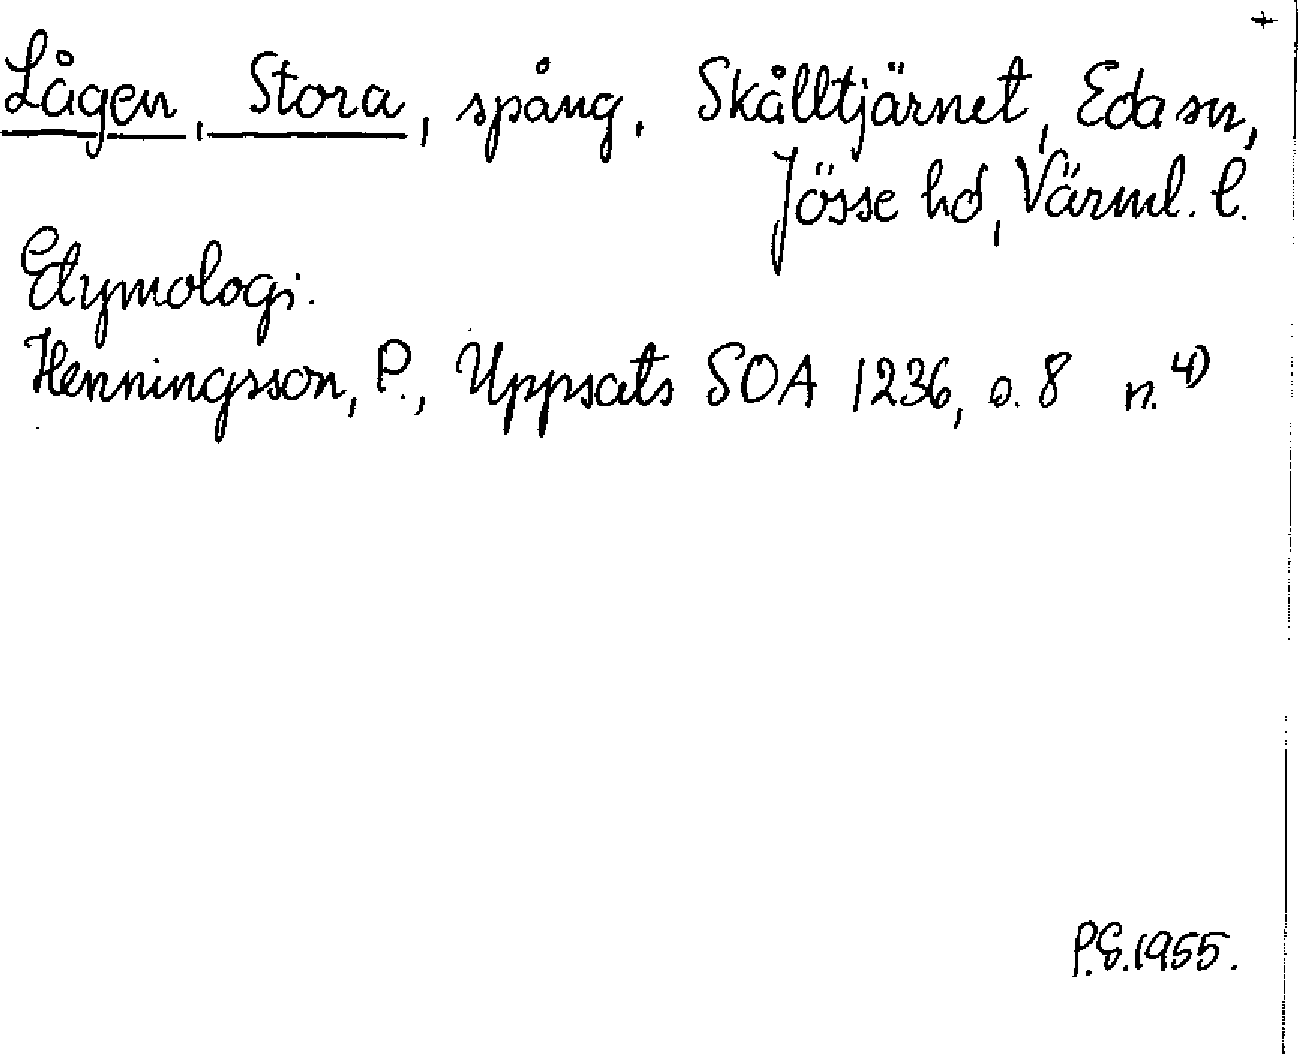 +
Lågen, Stora, spång, Skålltjärnet, Eda sn,
Jösse hd, Värml. l.
Etymologi.
Henningsson, P., Uppsats SOA 1236, s. 8 n. 4)
P.G. 1955.